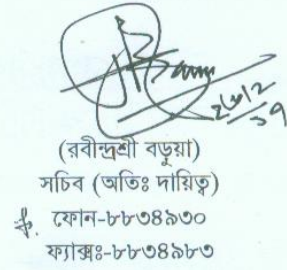 (রবীন্দ্রশ্রী বড়ুয়া)
সচিব (অতিঃ দায়িত্ব)
ফোন-৮৮৩৪৯৩০
ফ্যাক্সঃ-৮৮৩৪৯৮৩